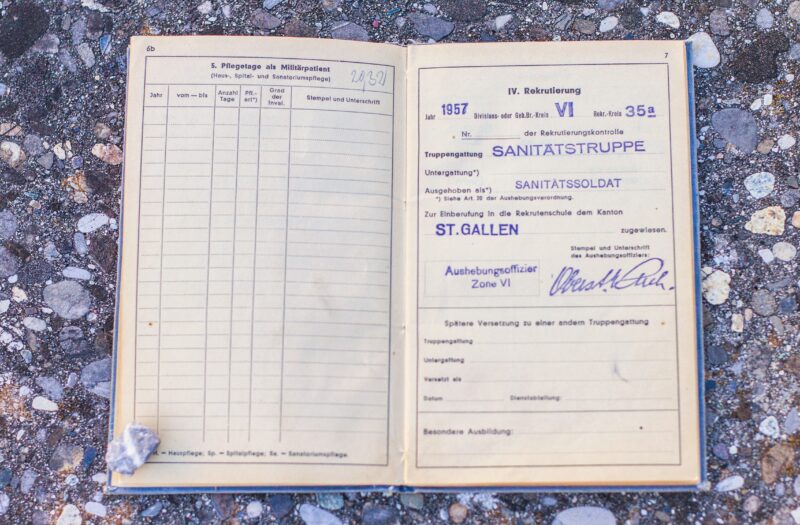 6b
5. Pflegetage als Militärpatient
(Haus-, Spital- und Sanatoriumspflege)
Jahr
vom — bis
Anzahl Tage
Pfl.-art*)
Grad der Inval.
Stempel und Unterschrift
— Hauspflege; Sp. — Spitalpflege; Sa. — Sanatoriumspflege.
7
IV. Rekrutierung
Jahr 1957 Divisions- oder Geb.Br.-Kreis VI Rekr.-Kreis 35a
Nr. der Rekrutierungskontrolle
Truppengattung SANITÄTSTRUPPE
Untergattung*)
Ausgehoben als*) SANITÄTSSOLDAT
*) Siehe Art. 20 der Aushebungsverordnung.
Zur Einberufung in die Rekrutenschule dem Kanton
ST. GALLEN zugewiesen.
Stempel und Unterschrift
des Aushebungsoffiziers:
Aushebungsoffizier
Zone VI
Spätere Versetzung zu einer andern Truppengattung
Truppengattung
Untergattung
Versetzt als
Datum Dienstabteilung:
Besondere Ausbildung: